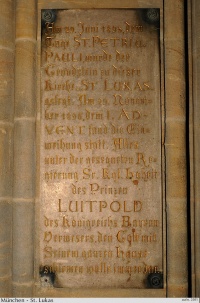 Am 29. Juni 1893, dem
Tage ST. PETRI u.
PAULI wurde der
Grundstein zu dieser
Kirche, ST. LUKAS,
gelegt. Am 29. Novem-
ber 1896, dem 1. AD-
VENT fand die Ein-
weihung statt. Alles
unter der gesegneten Re-
gierung Sr. Kgl. Hoheit
des Prinzen
LUITPOLD
des Königreichs Bayern
Verwesers, den Gott mit
Seinem ganzen Hause
segnen wolle
München - St. Lukas